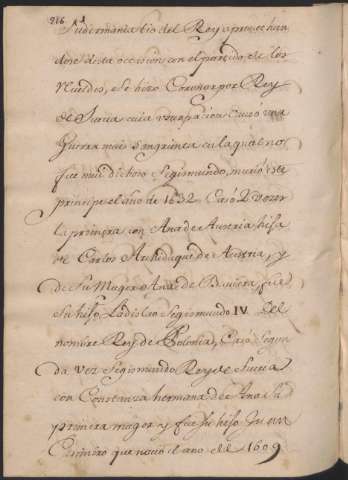 216
Sudermania tio del Rey aprovechan
dose desta occasion con el partido de los
rreueldes, e se hizo Coronar por Rey
de Suecia cuia vsurpacion causó vna
guerra mui sangrienta en la qual no
fue mui dichoso Segismundo, murió este
principe el año de 1632. Casó 2 vezes
la primera con Ana de Austria hija
de Carlos Archiduque de Austria, y
de Su Muger Ana de Baviera fue
Su hijo Ladislao Segismundo IV del
nombre Rey de Polonia, Casó Segun
da vez Segismundo Rey de Suecia
con Constanza hermana de Ana su
primera muger y fue su hijo Juan
Casimiro que nació el año de 1609